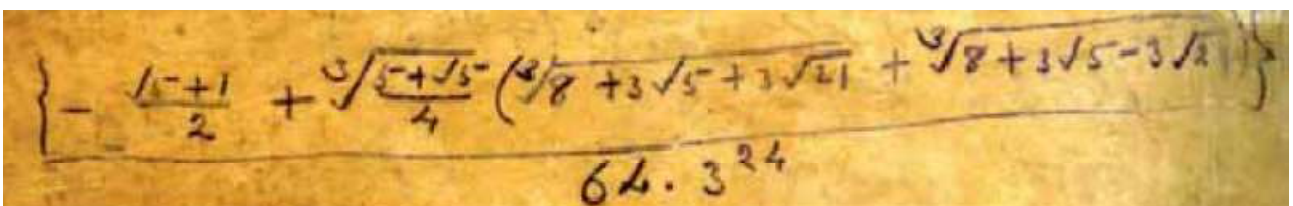 { - (√5+1)/2 + ∛((5+√5)/4) (∛(8+3√5+3√21) + ∛(8+3√5-3√21)) }
64 · 3^24